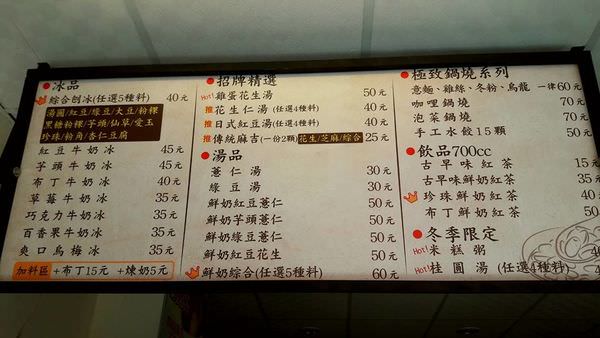 冰品
綜合刨冰(任選5種料) 40元
湯圓/紅豆/綠豆/大豆/粉粿
黑糖粉粿/芋頭/仙草/愛玉
珍珠/粉角/杏仁豆腐
紅豆牛奶冰 45元
芋頭牛奶冰 45元
布丁牛奶冰 40元
草莓牛奶冰 35元
巧克力牛奶冰 35元
百香果牛奶冰 35元
爽口烏梅冰 35元
加料區 +布丁15元 +煉奶5元
招牌精選
Hot! 雞蛋花生湯 50元
推 花生仁湯(任選4種料) 40元
推 日式紅豆湯(任選4種料) 50元
推 傳統麻吉(一份2顆) 花生/芝麻/綜合 25元
湯品
薏仁湯 30元
綠豆湯 30元
鮮奶紅豆薏仁 50元
鮮奶芋頭薏仁 50元
鮮奶綠豆薏仁 50元
鮮奶紅豆花生 50元
鮮奶綜合(任選5種料) 60元
極致鍋燒系列
意麵、雞絲、冬粉、烏龍 一律60元
咖哩鍋燒 70元
泡菜鍋燒 70元
手工水餃15顆 50元
飲品700cc
古早味紅茶 15元
古早味鮮奶紅茶 35元
珍珠鮮奶紅茶 40元
布丁鮮奶紅茶 50元
冬季限定
Hot! 米糕粥 40
Hot! 桂圓湯(任選4種料)